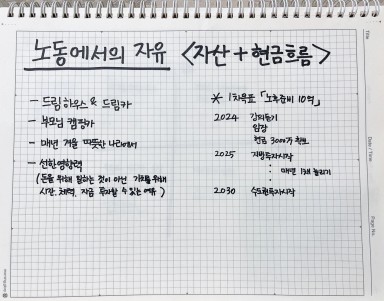 노동에서의 자유 <자산 + 현금흐름>
- 드림하우스 & 드림카
- 부모님 캠핑카
- 매년 겨울 따뜻한 나라에서
- 선한영향력
(돈을 위해 일하는 것이 아닌 가치를 위해
시간, 체력, 자금 투자할 수 있는 여유)
* 1차목표 「노후준비 10억」
2024 강의듣기
임장
현금 3000만 확보
2025 지방투자시작
· 매년 1채 늘리기
2030 수도권투자시작
Title
Date / Time
Page No.